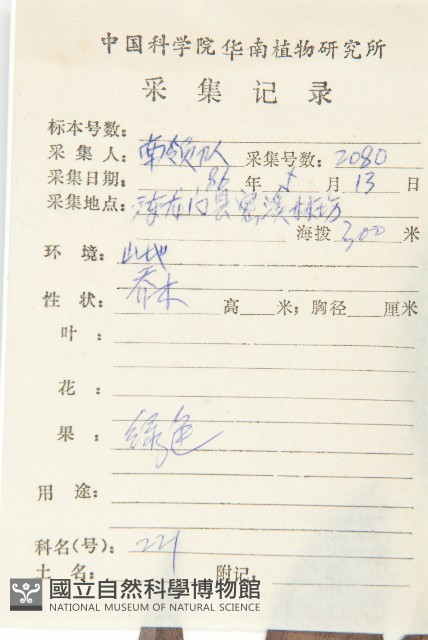 中国科学院华南植物研究所
采集记录
标本号数：
采集人：南岭队 采集号数：2080
采集日期： 86年5月13日
采集地点：龙门县 溪林场
海拨 300 米
环境：山地
性状：乔木 高 米；胸径 厘米
叶：
花：
果：绿色
用途：
科名(号)：221
土名： 附记：
國立自然科學博物館
NATIONAL MUSEUM OF NATURAL SCIENCE